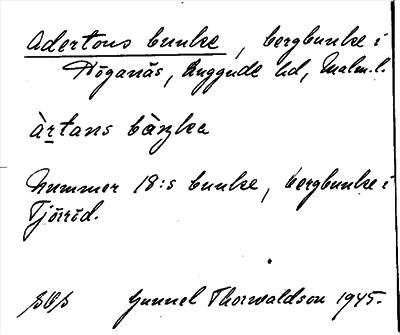 Adertons bunke, bergbunke i
Höganäs, Luggude hd, Malm. l.
àrtans bànka
Nummer 18:s bunke, bergbunke i
Tjörröd.
Gunnel Thorwaldson 1945.